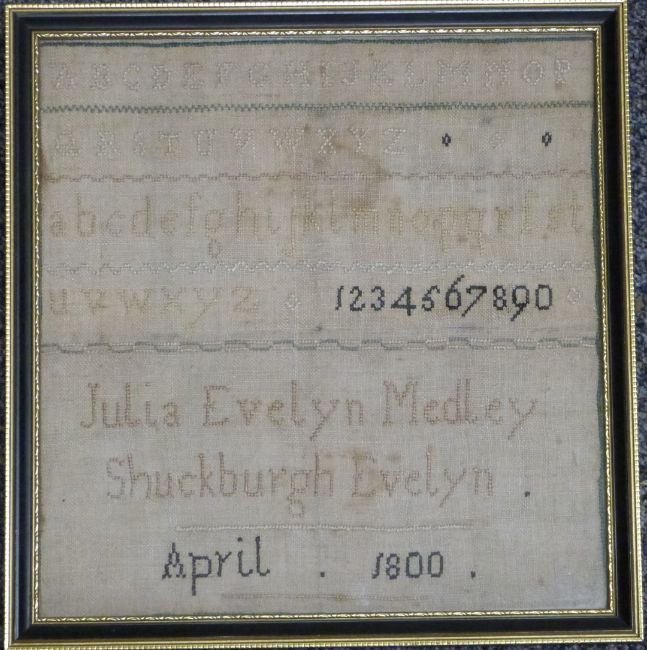 ABCDEFGHIJKLMNOP
QRSTUVWXYZ
abcdefghijklmnopqrſst
uvwxyz 1234567890
Julia Evelyn Medley
Shuckburgh Evelyn .
April . 1800 .